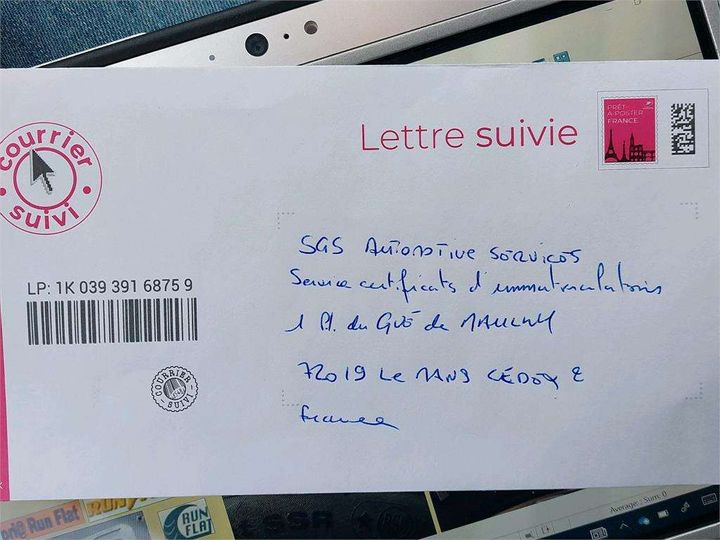 courrier
suivi
Lettre suivie
PRÊT-
À-POSTER
FRANCE
SGS AUTOMOTIVE SERVICES
Service certificats d'immatriculations
1 Pl. du GUÉ de MAULNY
LP: 1K 039 391 6875 9
72019 LE MANS CÉDEX 2
France
COURRIER
SUIVI
Run Flat
RUN
FLAT
SSR
Average: ; Sum: 0